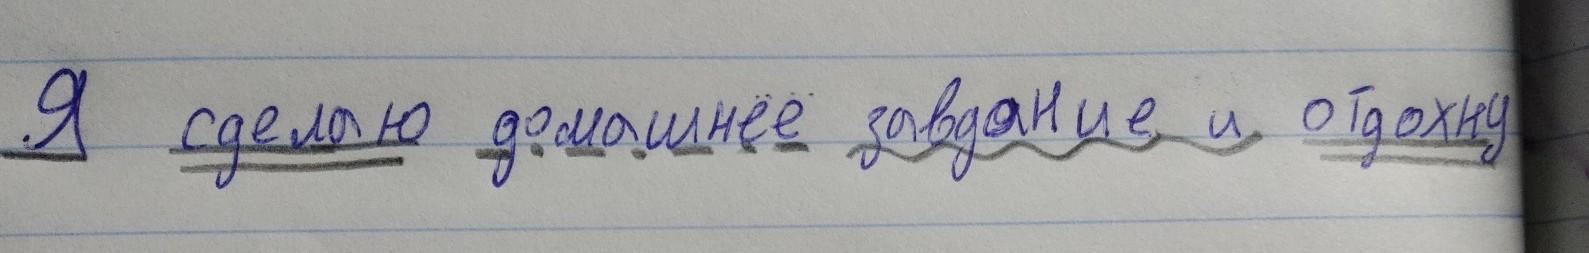 Я сделаю домашнёё завдание и отдохну